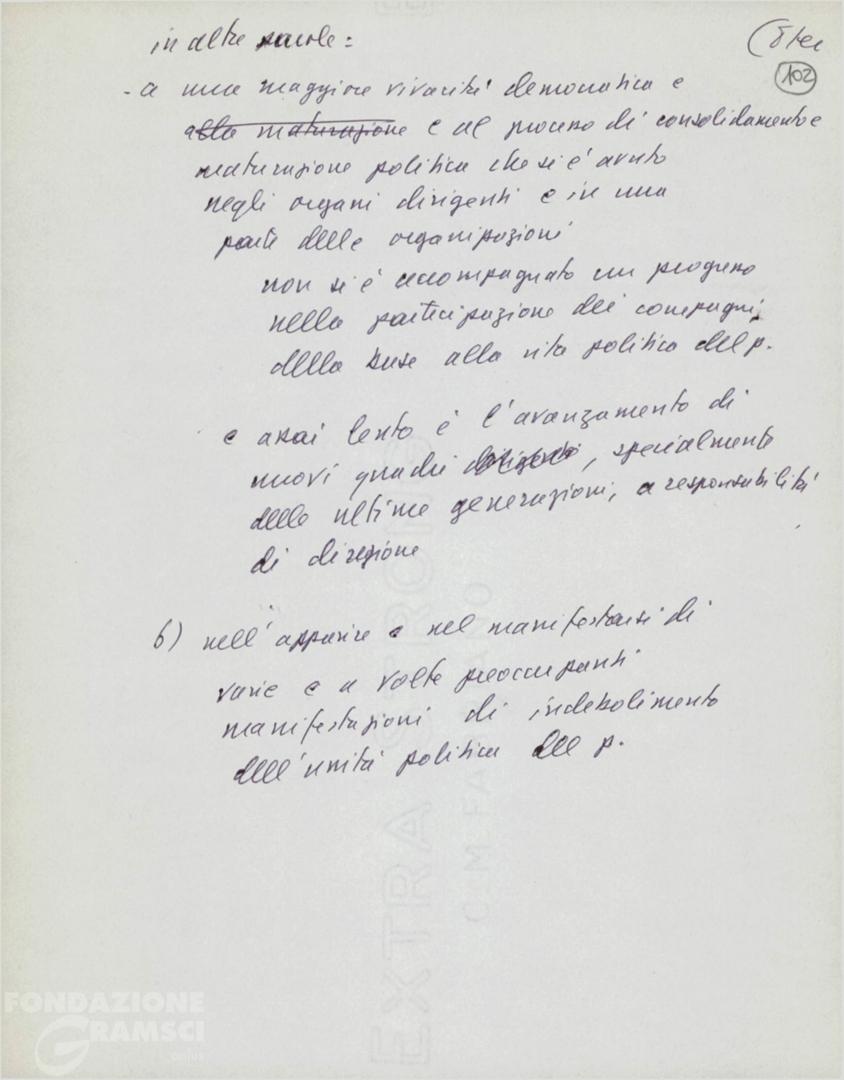 in altre parole:
(8 ter
102
- a una maggiore vivacità democratica e
alla maturazione e al processo di consolidamento e
maturazione politica che si è avuto
negli organi dirigenti e in una
parte delle organizzazioni
non si è accompagnato un progresso
nella partecipazione dei compagni
della base alla vita politica del p.
e assai lento è l'avanzamento di
nuovi quadri, specialmente
delle ultime generazioni, a responsabilità
di direzione
b) nell'apparire e nel manifestarsi di
varie e a volte preoccupanti
manifestazioni di indebolimento
dell'unità politica del p.
EXTRA STRONG
FONDAZIONE
GRAMSCI
onlus